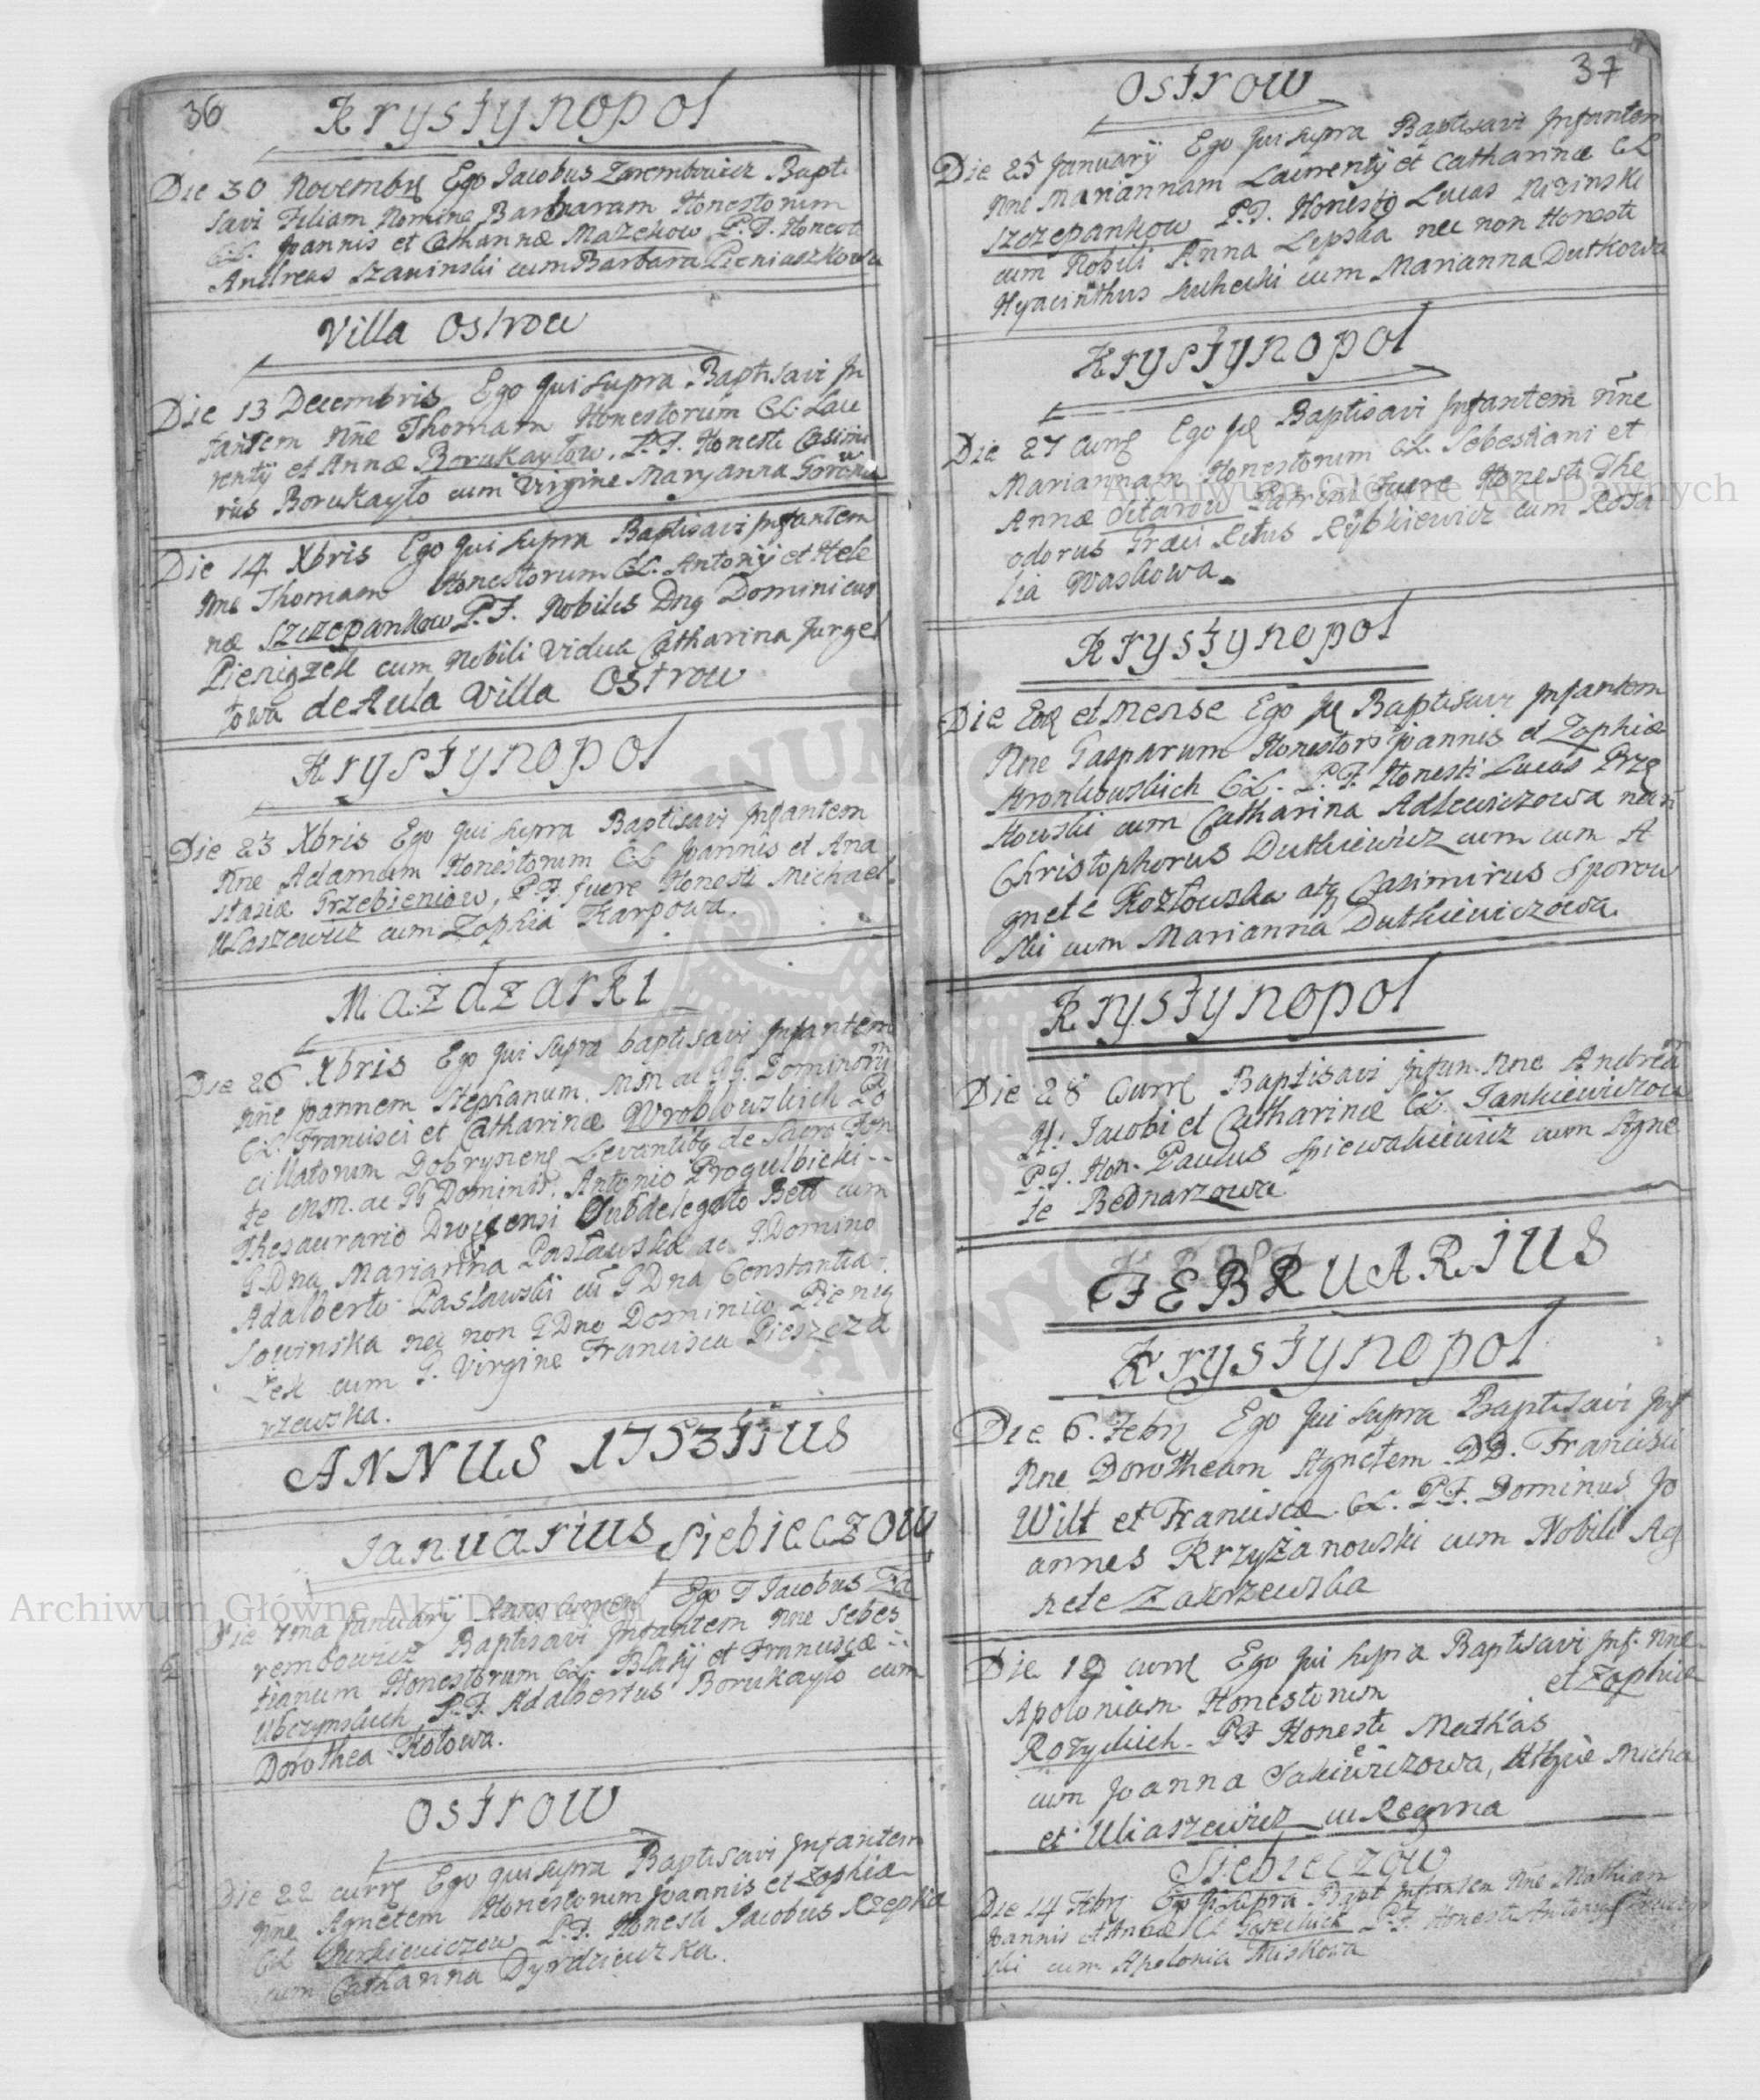 36
Krystynopol
Die 30 Novembr Ego Jacobus Zarembowicz Bapti
savi Filiam Nomine Barbaram Honestorum
CL. Joannis et Catharinæ Mazekow P.F. Honesti
Andreas Szawinski cum Barbara Pieniaszkowa
Villa Ostrow
Die 13 Decembris Ego qui supra Baptisavi In
fantem Nne Thomam Honestorum CL. Lau
rentij et Annæ Borukayłow, P.F. Honesti Casimi
rus Borukayło cum Virgine Maryanna
Die 14 Xbris Ego qui supra Baptisavi Infantem
Nne Thomam Honestorum CL. Antonij et Hele
næ Szczepankow P.F. Nobiles Dnq Dominicus
Pieniązek cum Nobili Vidua Catharina Jurgel
towa de Aula Villa Ostrow
Krystynopol
Die 23 Xbris Ego qui supra Baptisavi Infantem
Nne Adamum Honestorum CL Joannis et Ana
stasiæ Grzebieniow, P.F. fuere Honesti Michael
Ulaszewicz cum Zophia Karpowa.
Mazdzarki
Die 26 Xbris Ego qui supra baptisavi Infantem
Nne Joannem Stephanum, MM ac GG. Dominorum
CL. Francisci et Catharinæ Wrobwuskich Po
cillatorum Dobrynens Levantibq de Sacro Fon
te MM. ac GG Dominis. Antonio Progulbicki
Thesaurario Subdelegato Belt cum
G Dna Marianna Pasławska ac G Domino
Adalberto Pasławski cu G Dna Constantia
Sowinska nec non G Dno Dominico Pienią
zek cum G. Virgine Francisca Pieszcza
rzewska.
ANNUS 1753tius
Januarius Siebieczow
Die 7ma Januarij Anno Curren Ego F Jacobus Za
rembowicz Baptisavi Infantem Nne Sebes
tianum Honestorum CL. Blasij et Franciscæ
Ubczynskich P.F. Adalbertus Borukayło cum
Dorothea Kołowa.
Ostrow
Die 22 curre Ego qui supra Baptisavi Infantem
Nne Agnetem Honestorum Joannis et Zophiæ
CL P.F. Honesti Jacobus Rzepka
cum Catharina Dyrdziewzka.
37
Ostrow
Die 25 Januarij Ego qui supra Baptisavi Infantem
Nne Mariannam Laurentij et Catharinæ CL
Szczepankow P.F. Honesto Lucas Nizinski
cum Nobili Anna Lepska nec non Honesti
Hyacinthus Suhecki cum Marianna Dutkowa
Krystynopol
Die 27 Curre Ego Baptisavi Infantem Nne
Mariannam Honestorum CL. Sebestiani et
Annæ Sitarow Patrini fuere Honesti The
odorus Græci Ritus Rybkiewicz cum Rosa
lia Waskowa.
Krystynopol
Die Eod et Mense Ego Baptisavi Infantem
Nne Gasparum Honestor Joannis et Zophiæ
Kronkowskich CL. P.F. Honesti Lucas Prze
kowski cum Catharina Adlewiczowa
Christophorus Dutkiewicz cum cum A
gnete Kozłowska atq Casimirus Sporow
ski cum Marianna Dutkiewiczowa.
Krystynopol
Die 28 Curre Baptisavi Infan. Nne Andrea
H. Jacobi et Catharinæ CL. Jankiewiczow
P.F. Hon. Paulus Spiewakiewicz cum Agne
te Bednarzowa
FEBRUARIUS
Krystynopol
Die 6. Febr Ego qui supra Baptisavi Inf
Nne Dorotheam Agnetem DD. Francisci
Wilt et Franciscæ CL. P.F. Dominus Jo
annes Krzyżanowski cum Nobili Ag
nete Zakrzewska
Die 12 curre Ego qui supra Baptisavi Inf. Nne
Apoloniam Honestorum et Zophiæ
Rozyckich. P.F. Honesti Mathias
cum Joanna Sakiewiczowa, Atque Micha
el Uliaszewicz cu Regina
Siebieczow
Die 14 Febr Ego qi supra Bapt Infantem Nne Mathiam
Joannis et Annæ CL P.F. Honesti Antonius
ski cum Apolonia Miskowa
Archiwum Główne Akt Dawnych
Archiwum Główne Akt Dawnych